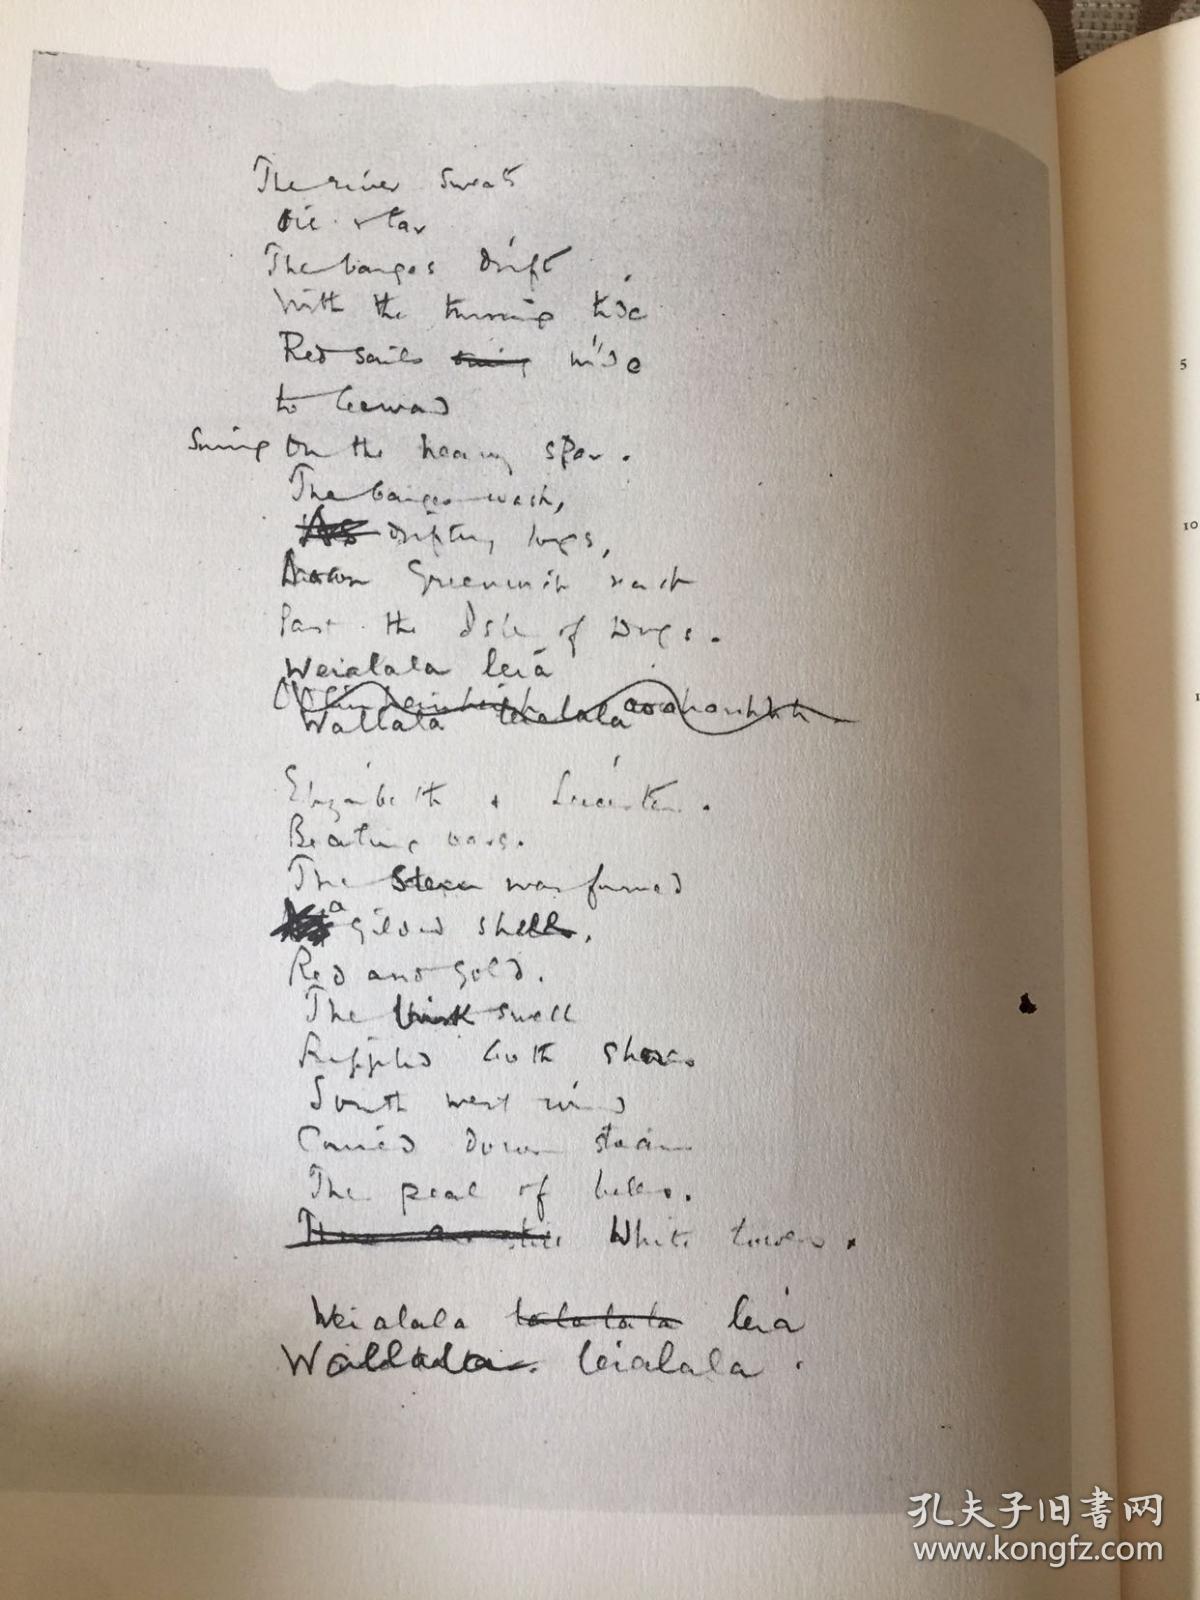 The river sweats
Oil & tar
The barges drift
With the turning tide
Red sails swing wide
to leeward
Swing On the heavy spar.
The barges wash,
As drifting logs,
Down Greenwich reach
Past the Isle of Dogs.
Weialala leia
Wallala leialala
Elizabeth & Leicester.
Beating oars.
The Stern was formed
a gilded shell,
Red and Gold.
The brisk swell
Rippled both shores
South west wind
Carried down stream
The peal of bells.
There are still White towers.
Weialala lalalala leia
Wallala leialala.
5
10
1
孔夫子旧书网
www.kongfz.com